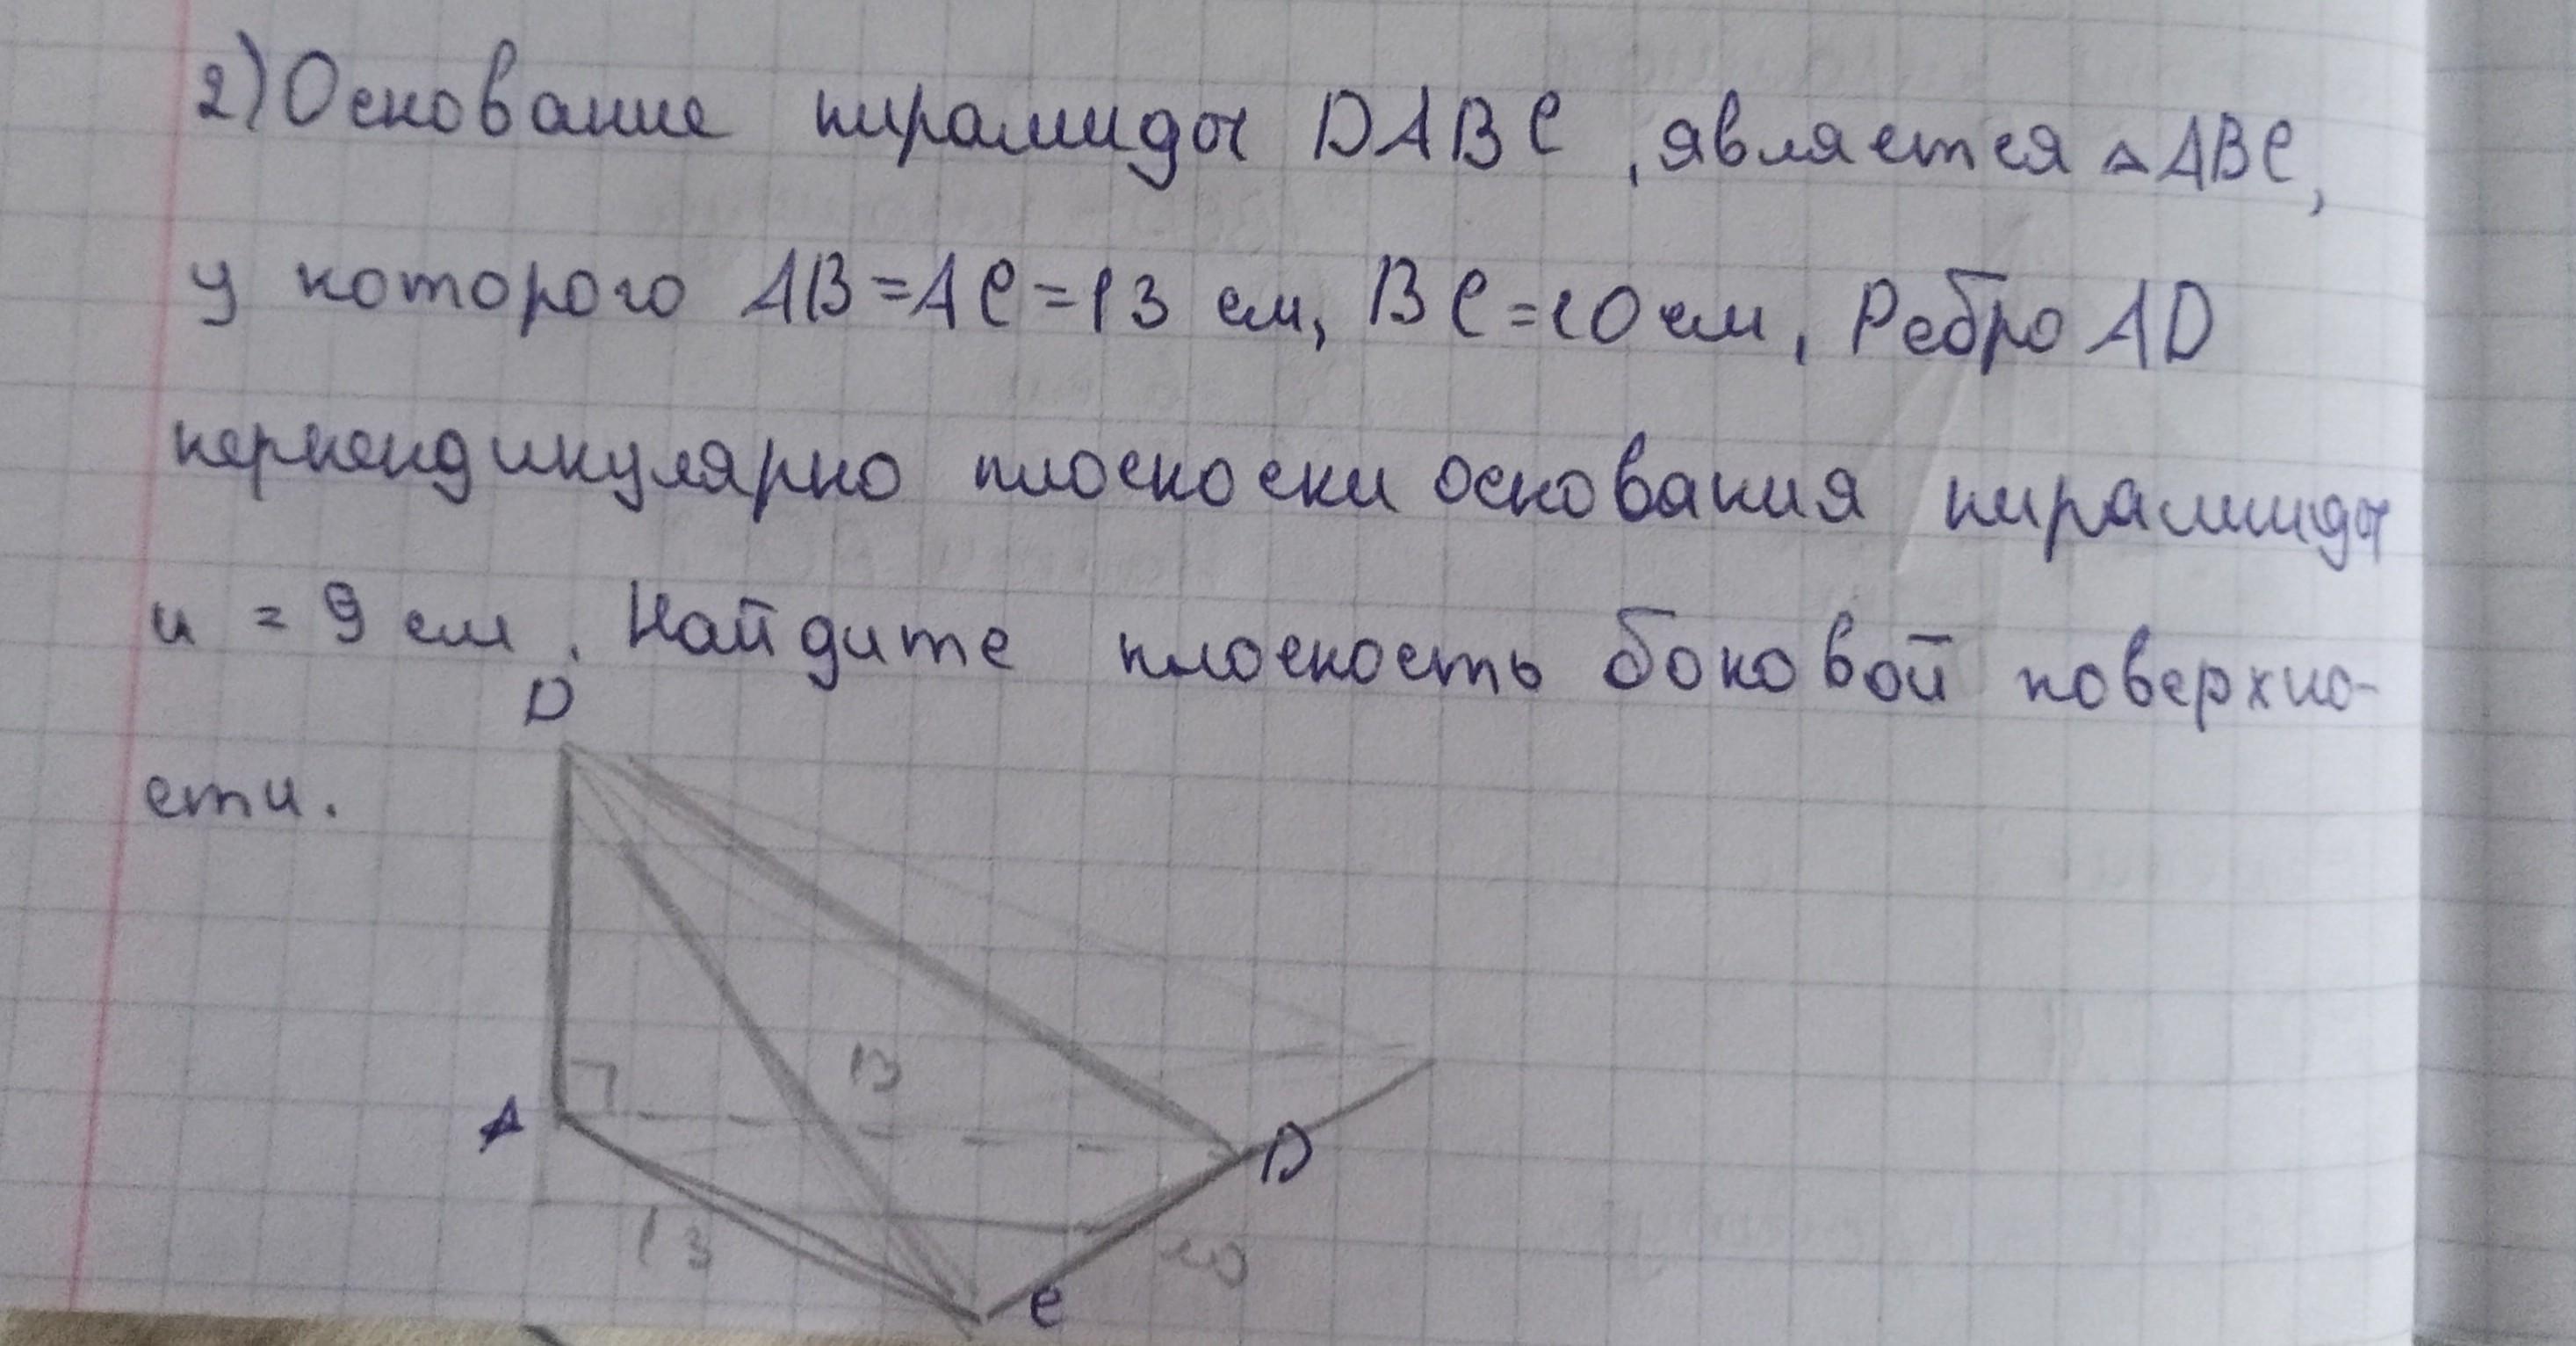 2) Основание пирамиды DABC, является △ABC,
у которого AB=AC=13 см, BC=10см, Ребро AD
перпендикулярно плоскоски основания пирамиды
и = 9 см. Найдите плоскость боковой поверхно-
сти.
D
13
A
D
13
10
C